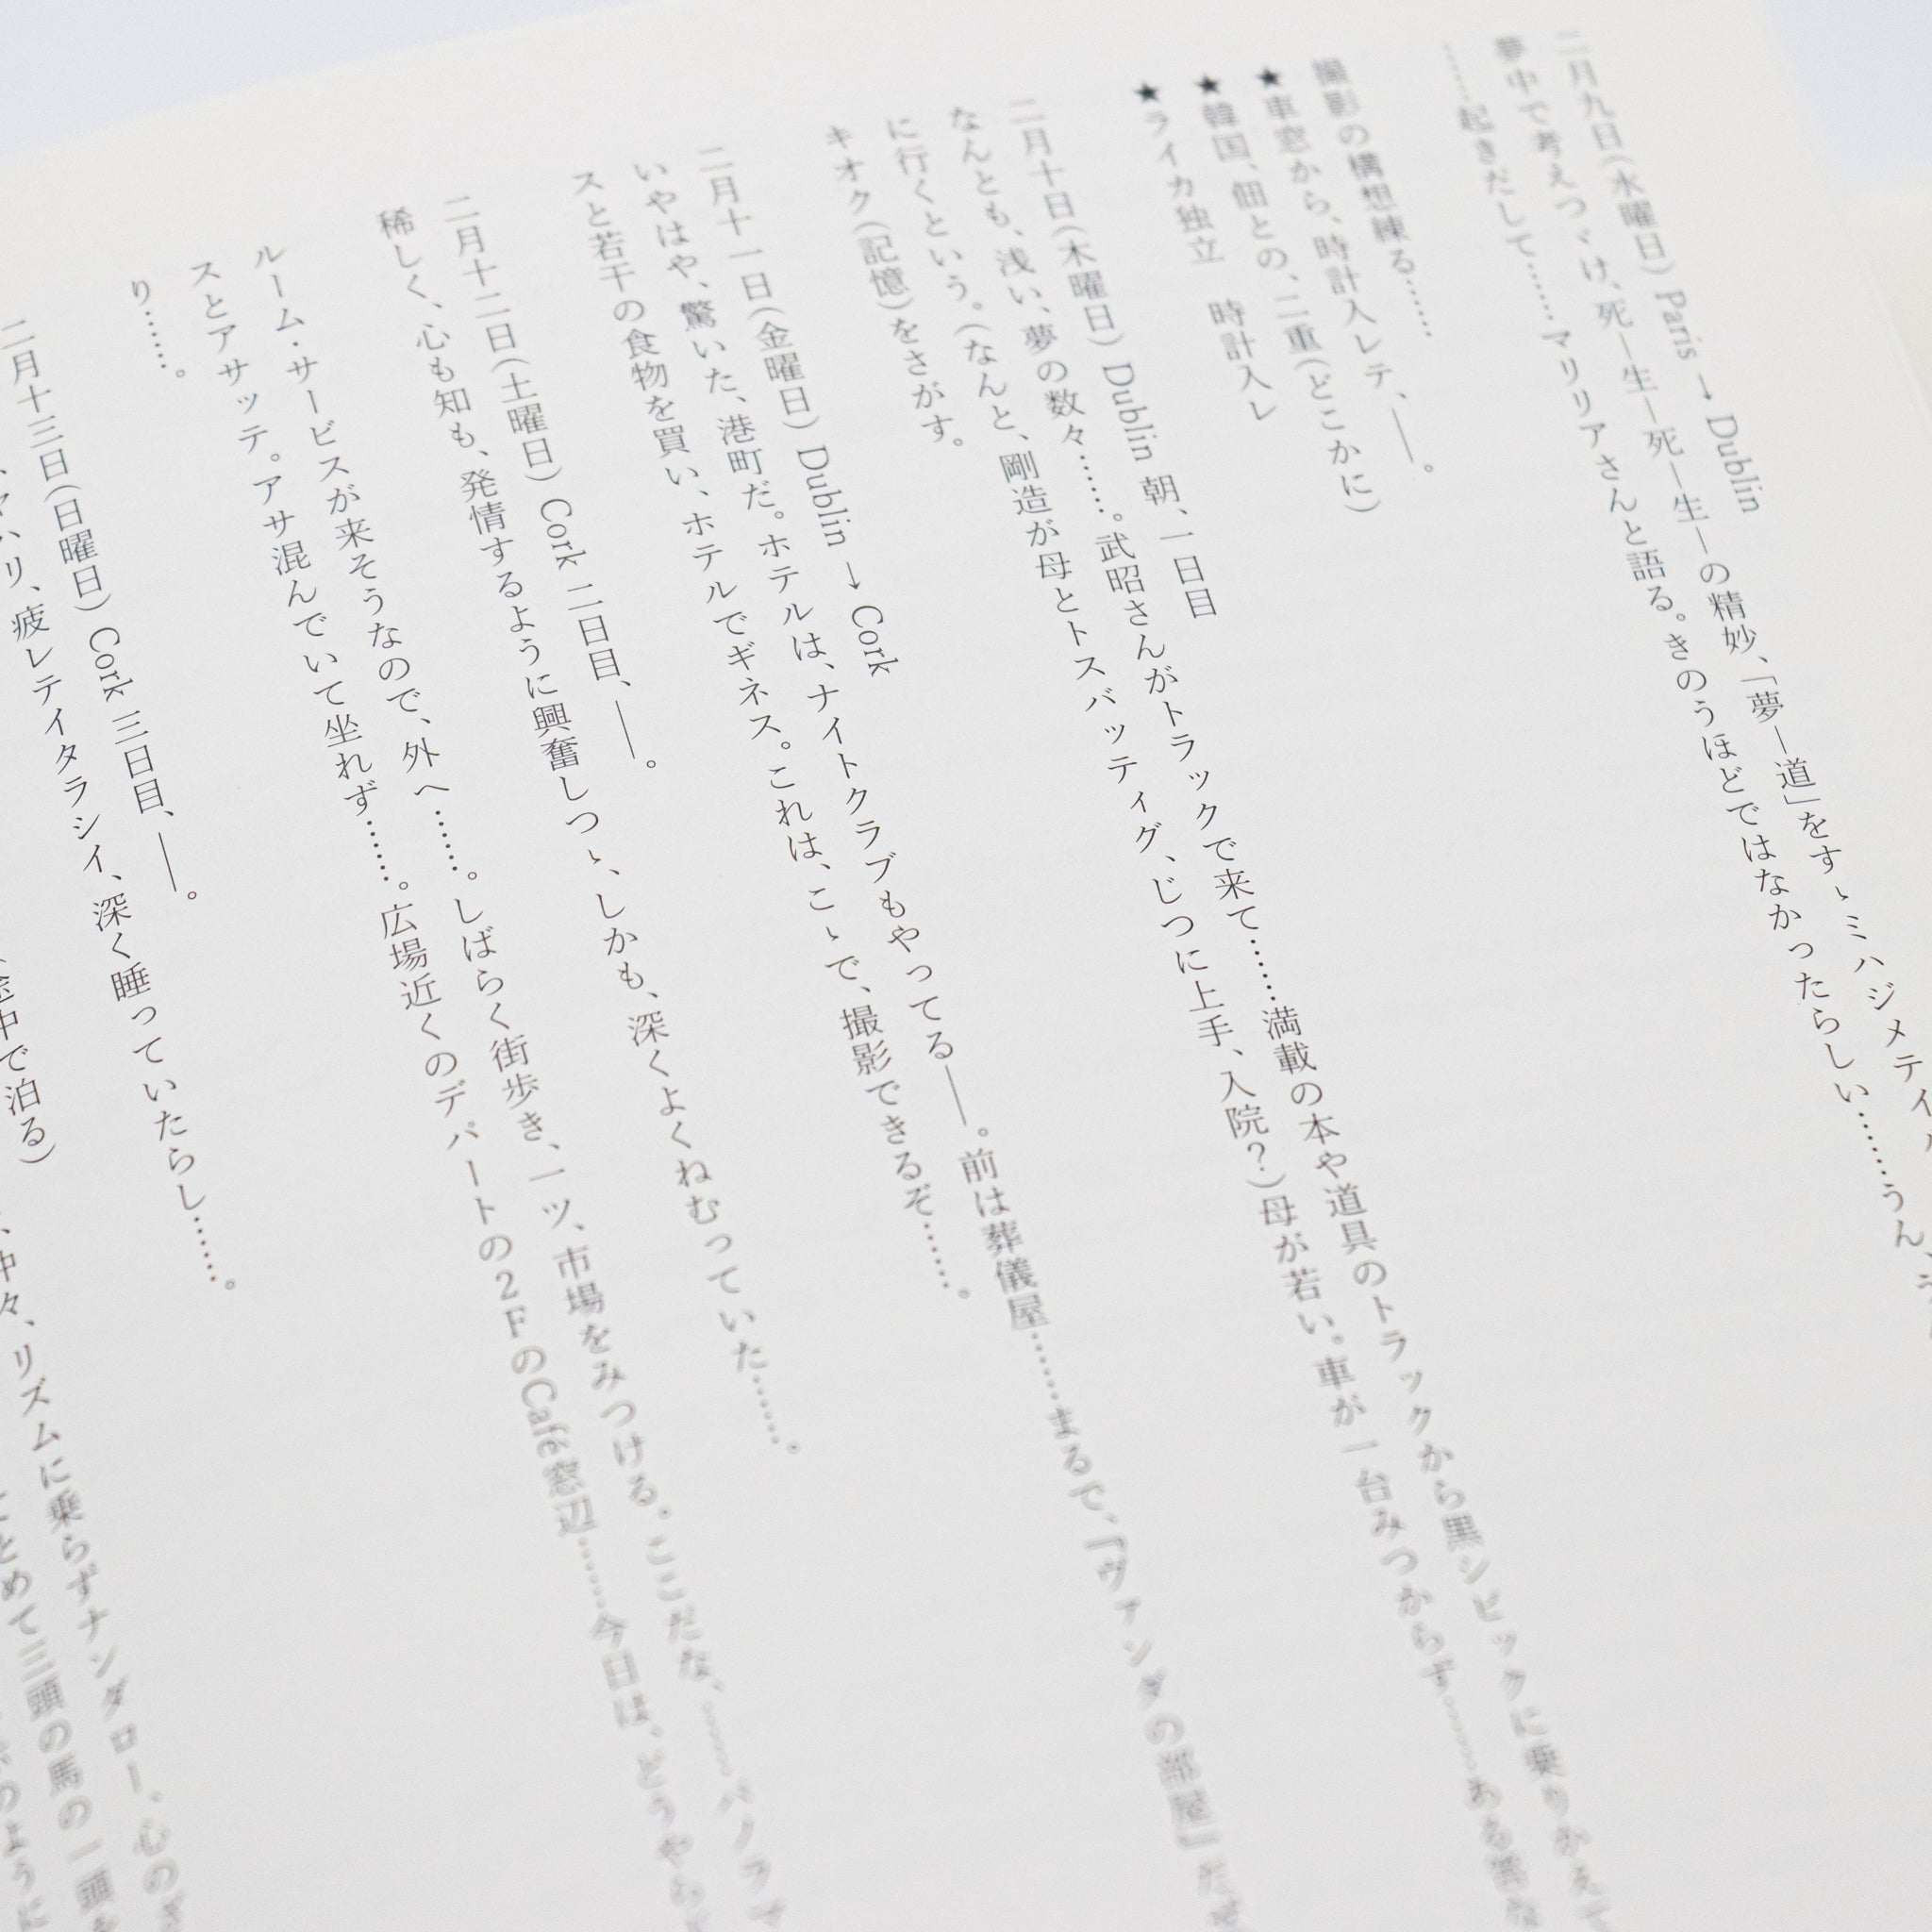 二月九日(水曜日) Paris → Dublin
夢中で考えつゞけ、死—生—死—生—の精妙、「夢—道」をすゝミハジメテイル
……起きだして……マリリアさんと語る。きのうほどではなかったらしい……うん、
撮影の構想練る……
★車窓から、時計入レテ、——。
★韓国、佃との、二重(どこかに)
★ライカ独立　時計入レ
二月十日(木曜日) Dublin 朝、一日目
なんとも、浅い、夢の数々……。武昭さんがトラックで来て……満載の本や道具のトラックから黒シビックに乗りかえて
に行くという。(なんと、剛造が母とトスバッティグ、じつに上手、入院?)母が若い。車が一台みつからず……ある筈な
キオク(記憶)をさがす。
二月十一日(金曜日) Dublin → Cork
いやはや、驚いた、港町だ。ホテルは、ナイトクラブもやってる——。前は葬儀屋……まるで、『ヴァンダの部屋』だ
スと若干の食物を買い、ホテルでギネス。これは、こゝで、撮影できるぞ……。
二月十二日(土曜日) Cork 二日目、——。
稀しく、心も知も、発情するように興奮しつゝ、しかも、深くよくねむっていた……。
ルーム・サービスが来そうなので、外へ……。しばらく街歩き、一ツ、市場をみつける。ここだな、……パノラマ
スとアサッテ。アサ混んでいて坐れず……。広場近くのデパートの2FのCafe窓辺……今日は、どうやら
り……。
二月十三日(日曜日) Cork 三日目、——。
ヤハリ、疲レテイタラシイ、深く睡っていたらし……。
途中で泊る)
、中々、リズムに乗らずナンダロー、心の
とめて三頭の馬の一頭を
のように